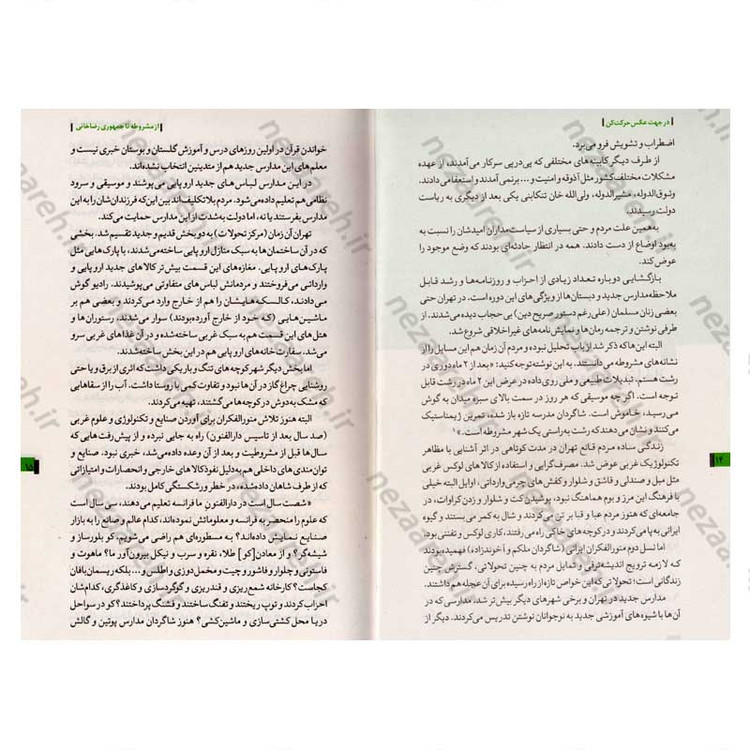 در جهت عکس حرکت کن
اضطراب و تشویش فرو می‌برد.
از طرف دیگر کابینه‌های مختلفی که پی‌درپی سرکار می‌آمدند، از عهده
مشکلات مختلف کشور مثل آذوقه و امنیت و... برنمی‌آمدند و استعفا می‌دادند.
وثوق‌الدوله، مشیرالدوله، ولی‌الله خان تنکابنی یکی بعد از دیگری به ریاست
دولت رسیدند.
به‌همین علت مردم و حتی بسیاری از سیاست‌مداران امیدشان را نسبت به
بهبود اوضاع از دست دادند. همه در انتظار حادثه‌ای بودند که وضع موجود را
عوض کند.
بازگشایی دوباره تعداد زیادی از احزاب و روزنامه‌ها و رشد قابل
ملاحظه مدارس جدید و دبستان‌ها از ویژگی‌های این دوره است. در تهران حتی
بعضی زنان مسلمان (علی‌رغم دستور صریح دین) بی‌حجاب دیده می‌شدند. از
طرفی نوشتن و ترجمه رمان‌ها و نمایش‌نامه‌های غیراخلاقی شروع شد.
البته این‌ها که ذکر شد از باب تحلیل نبوده و مردم آن زمان هم این مسایل را از
نشانه‌های مشروطه می‌دانستند. به این نوشته توجه کنید: «بعد از ۲ ماه دوری در
رشت هستم. تبدیلات طبیعی و ملی روی داده در عرض این ۲ ماه در رشت قابل
توجه است. اگر چه موسیقی که هر روز در سمت بالای سبزه میدان به گوش
می‌رسید، خاموش است. شاگردان مدرسه تازه باز شده، تمرین ژیمناستیک
می‌کنند و نشان می‌دهند که رشت به‌راستی یک شهر مشروطه است.»
زندگی ساده مردم قانع تهران در مدت کوتاهی در اثر آشنایی با مظاهر
تکنولوژیک غربی عوض شد. مصرف‌گرایی و استفاده از کالاهای لوکس غربی
مثل مبل و صندلی و قاشق و شلوار و کفش‌های چرمی وارداتی، اوایل البته خیلی
با فرهنگ این مرز و بوم هماهنگ نبود. پوشیدن کت و شلوار و زدن کراوات، در
جامعه‌ای که هنوز مردم عبا و قبا بر تن می‌کردند و شال به کمر می‌بستند و گیوه
ایرانی به پا می‌کردند و در کوچه‌های خاکی راه می‌رفتند، کاری لوکس و تفننی بود.
اما نسل دوم منورالفکران ایرانی (شاگردان ملکم و آخوندزاده) فهمیده بودند
که لازمه ترویج اندیشه ترقی و تمایل مردم به چنین تحولاتی، گسترش چنین
زندگانی است؛ تحولاتی که این خواص تازه از راه رسیده برای آن عجله هم داشتند.
مدارس جدید در تهران و برخی شهرهای دیگر بیش‌تر شد. مدارسی که در
آن‌ها با شیوه‌های آموزشی جدید به نوجوانان نوشتن تدریس می‌کردند. دیگر از
۱۴
از مشروطه تا جمهوری رضاخانی
خواندن قرآن در اولین روزهای درس و آموزش گلستان و بوستان خبری نیست و
معلم‌های این مدارس جدید هم از متدینین انتخاب نشده‌اند.
در این مدارس لباس‌های جدید اروپایی می‌پوشند و موسیقی و سرود
نظامی هم تعلیم داده می‌شود. مردم بلاتکلیف‌اند بین این که فرزندان‌شان را به این
مدارس بفرستند یا نه، اما دولت به‌شدت از این مدارس حمایت می‌کند.
تهران آن زمان (مرکز تحولات) به دو بخش قدیم و جدید تقسیم شد. بخشی
که در آن ساختمان‌ها به سبک منازل اروپایی ساخته می‌شدند، با پارک‌هایی مثل
پارک‌های اروپایی. مغازه‌های این قسمت بیش‌تر کالاهای جدید اروپایی و
وارداتی می‌فروختند و مردمانش لباس‌های متفاوتی می‌پوشیدند. رادیو گوش
می‌دادند، کالسکه‌هایشان را هم از خارج وارد می‌کردند و بعضی هم بر
ماشین‌هایی (که خود از خارج آورده بودند) سوار می‌شدند. رستوران‌ها و
هتل‌های این قسمت هم به سبک غربی ساخته شده و در آن غذاهای غربی سرو
می‌شد. سفارت‌خانه‌های اروپایی هم در این بخش ساخته شدند.
اما بخش دیگر شهر کوچه‌های تنگ و باریکی داشت که اثری از برق و یا حتی
روشنایی چراغ گاز در آن‌ها نبود و تفاوت کمی با روستا داشت. آب را از سقاهایی
که مشک به‌دوش در کوچه‌ها می‌گشتند، تهیه می‌کردند.
البته هنوز تلاش منورالفکران برای آوردن صنایع و تکنولوژی و علوم غربی
(صد سال بعد از تاسیس دارالفنون) راه به جایی نبرده و از پیش‌رفت‌هایی که
سال‌ها قبل از مشروطیت و بعد از آن وعده داده می‌شد، خبری نبود. صنایع و
توان‌مندی‌های داخلی هم به‌دلیل نفوذ کالاهای خارجی و انحصارات و امتیازاتی
که از طرف شاهان داده شده، در خطر ورشکستگی کامل بودند.
«شصت سال است در دارالفنونِ ما فرانسه تعلیم می‌دهند، سی سال است
که علوم را منحصر به فرانسه و معلوماتش نموده‌اند، کدام عالم و صانع را به بازار
صنایع نمایش داده‌اند؟ به مسطوره‌ای هم راضی می‌شویم. کو بلورساز و
شیشه‌گر؟ و از معادن [کو] طلا، نقره و سرب و نیکل بیرون‌آور ما؟ ماهوت و
فاستونی و چلوار و فاشور و چیت و مخمل‌دوزی و اطلس و... بلکه ریسمان‌بافان
کجاست؟ کارخانه شمع‌ریزی و قندریزی و گوگردسازی و کاغذگری، کدام‌شان
احزاب کردند و توپ ریختند و تفنگ ساختند و فشنگ پرداختند؟ کو در سواحل
دریا محل کشتی‌سازی و ماشین‌کشی؟ هنوز شاگردان مدارس پوتین و گالش
۱۵
nezaareh.ir